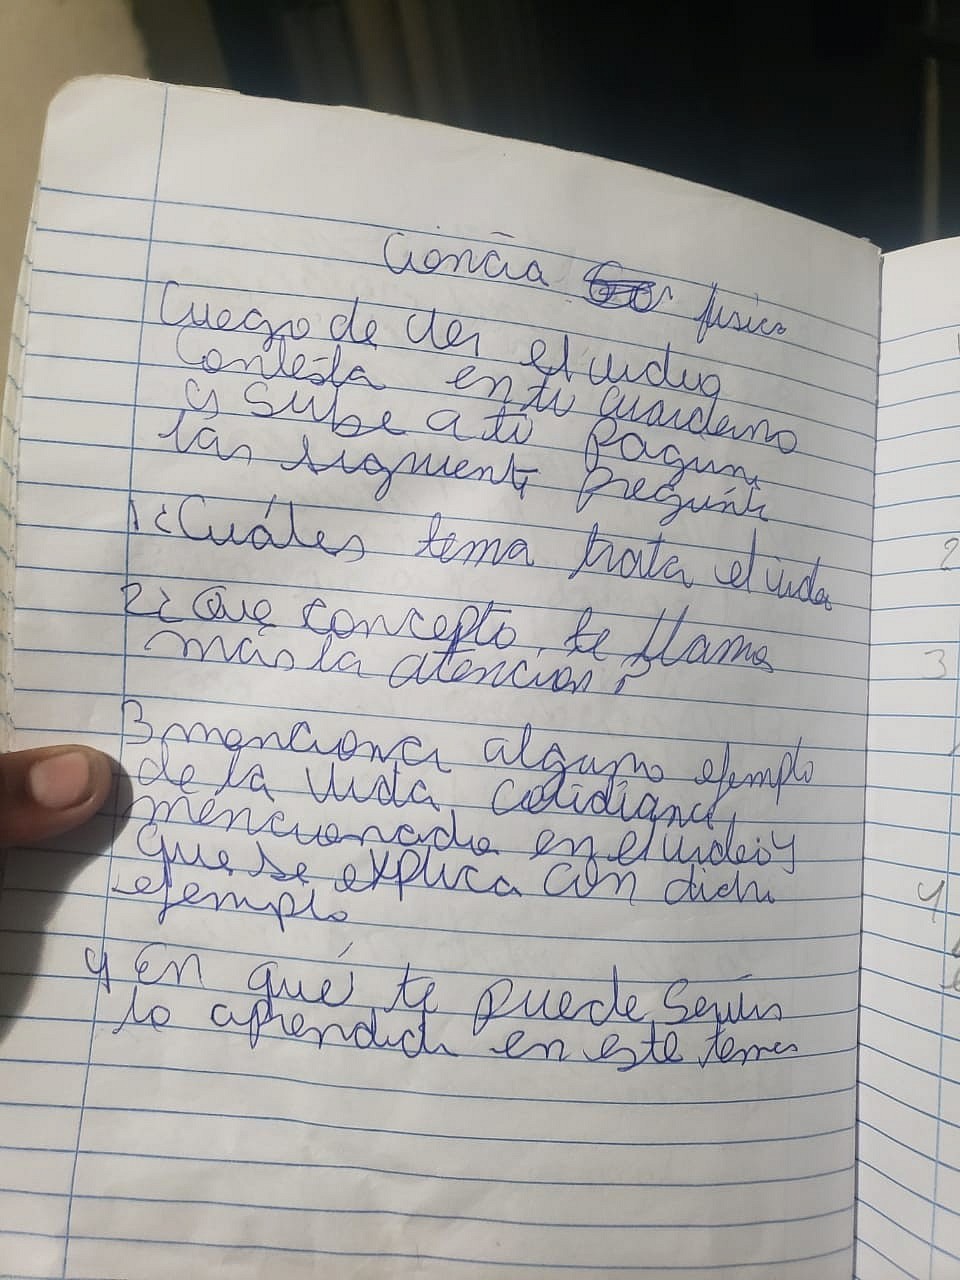 Ciencia física
Luego de ver el video
contesta en tu cuaderno
y sube a tu pagina
las siguient pregunt
1¿Cuáles tema trata el video
2¿Que concepto te llama
más la atencion?
3 mencionar alguno ejemplo
de la vida cotidiana
mencionado en el video y
que se explica con dicho
ejemplo
4 En qué te puede Servir
lo aprendido en este tema
2
3
4